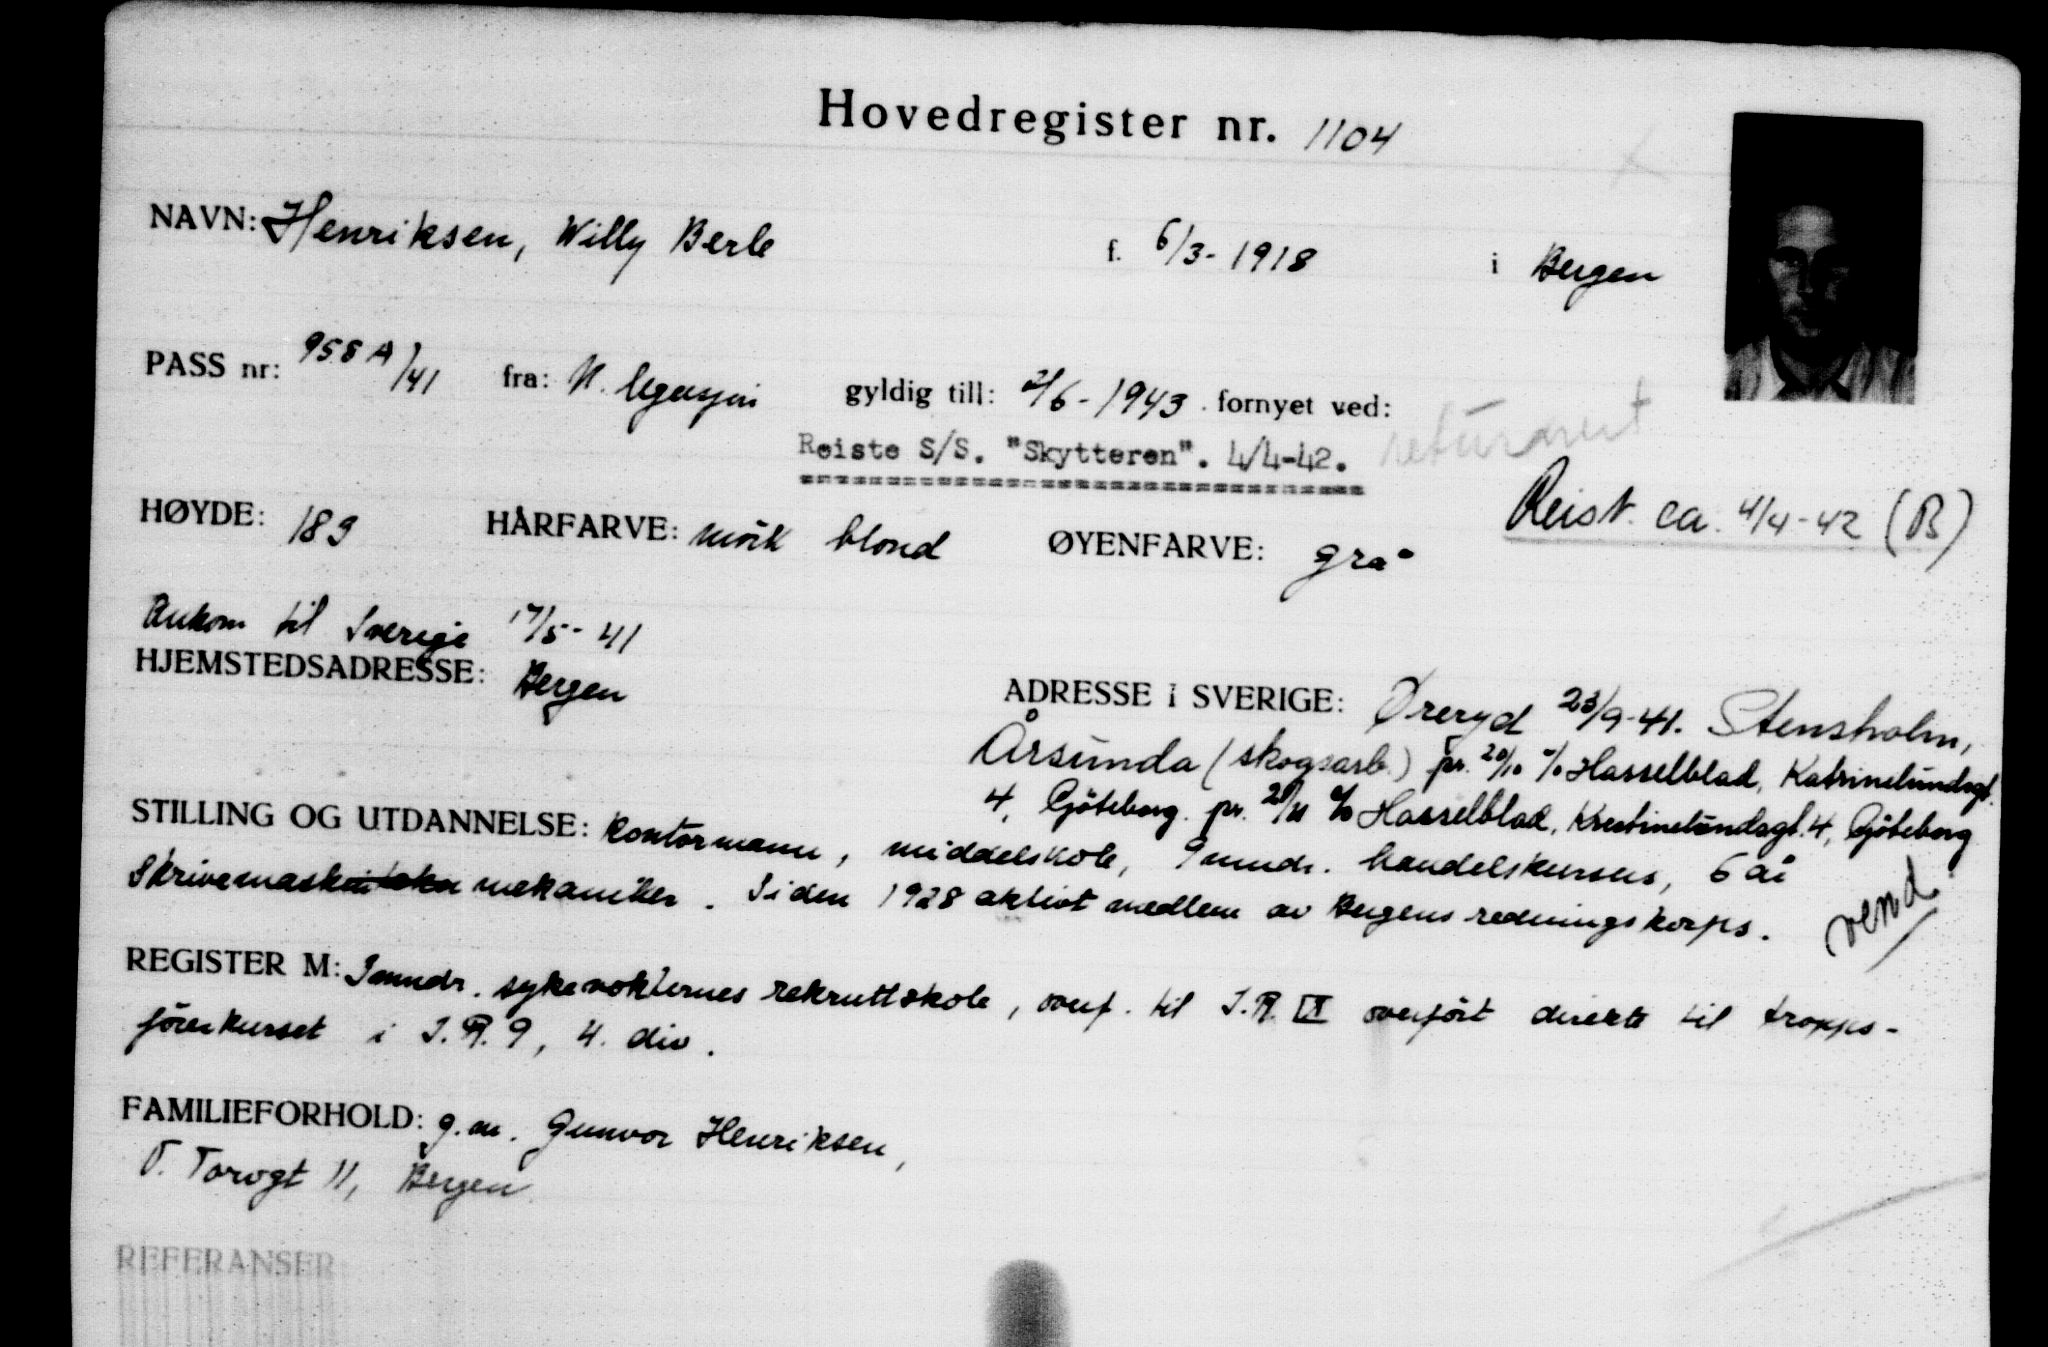 Hovedregister nr. 1104
NAVN: Henriksen, Willy Berle f. 6/3-1918 i Bergen
PASS nr: 958 A/41 fra: N. legasjon gyldig till: 2/6-1943 fornyet ved:
Reiste S/S. "Skytteren". 4/4-42. returnert
Reist ca. 4/4-42 (B)
HØYDE: 189 HÅRFARVE: mörk blond ØYENFARVE: grå
Ankom til Sverige 17/5-41
HJEMSTEDSADRESSE: Bergen
ADRESSE I SVERIGE: Øreryd 23/9-41. Stensholm,
Årsunda (skogsarb.) pr. 20/10 c/o Hasselblad, Katrinelundsgt.
4, Göteborg. pr. 21/11 c/o Hasselblad, Krestinelundsgt. 4, Göteborg
STILLING OG UTDANNELSE: Kontormann, middelskole, 9 mndr. handelskursus, 6 år
Skrivemaskin mekaniker. Siden 1928 aktivt medlem av Bergens redningskorps.
vend
REGISTER M: 3 mndr. sykevokternes rekruttskole, overf. til I.R. IX overført direkte til tropps-
förerkurset i I.R. 9, 4. div.
FAMILIEFORHOLD: g.m. Gunvor Henriksen,
T. Torvgt 11, Bergen
REFERANSER